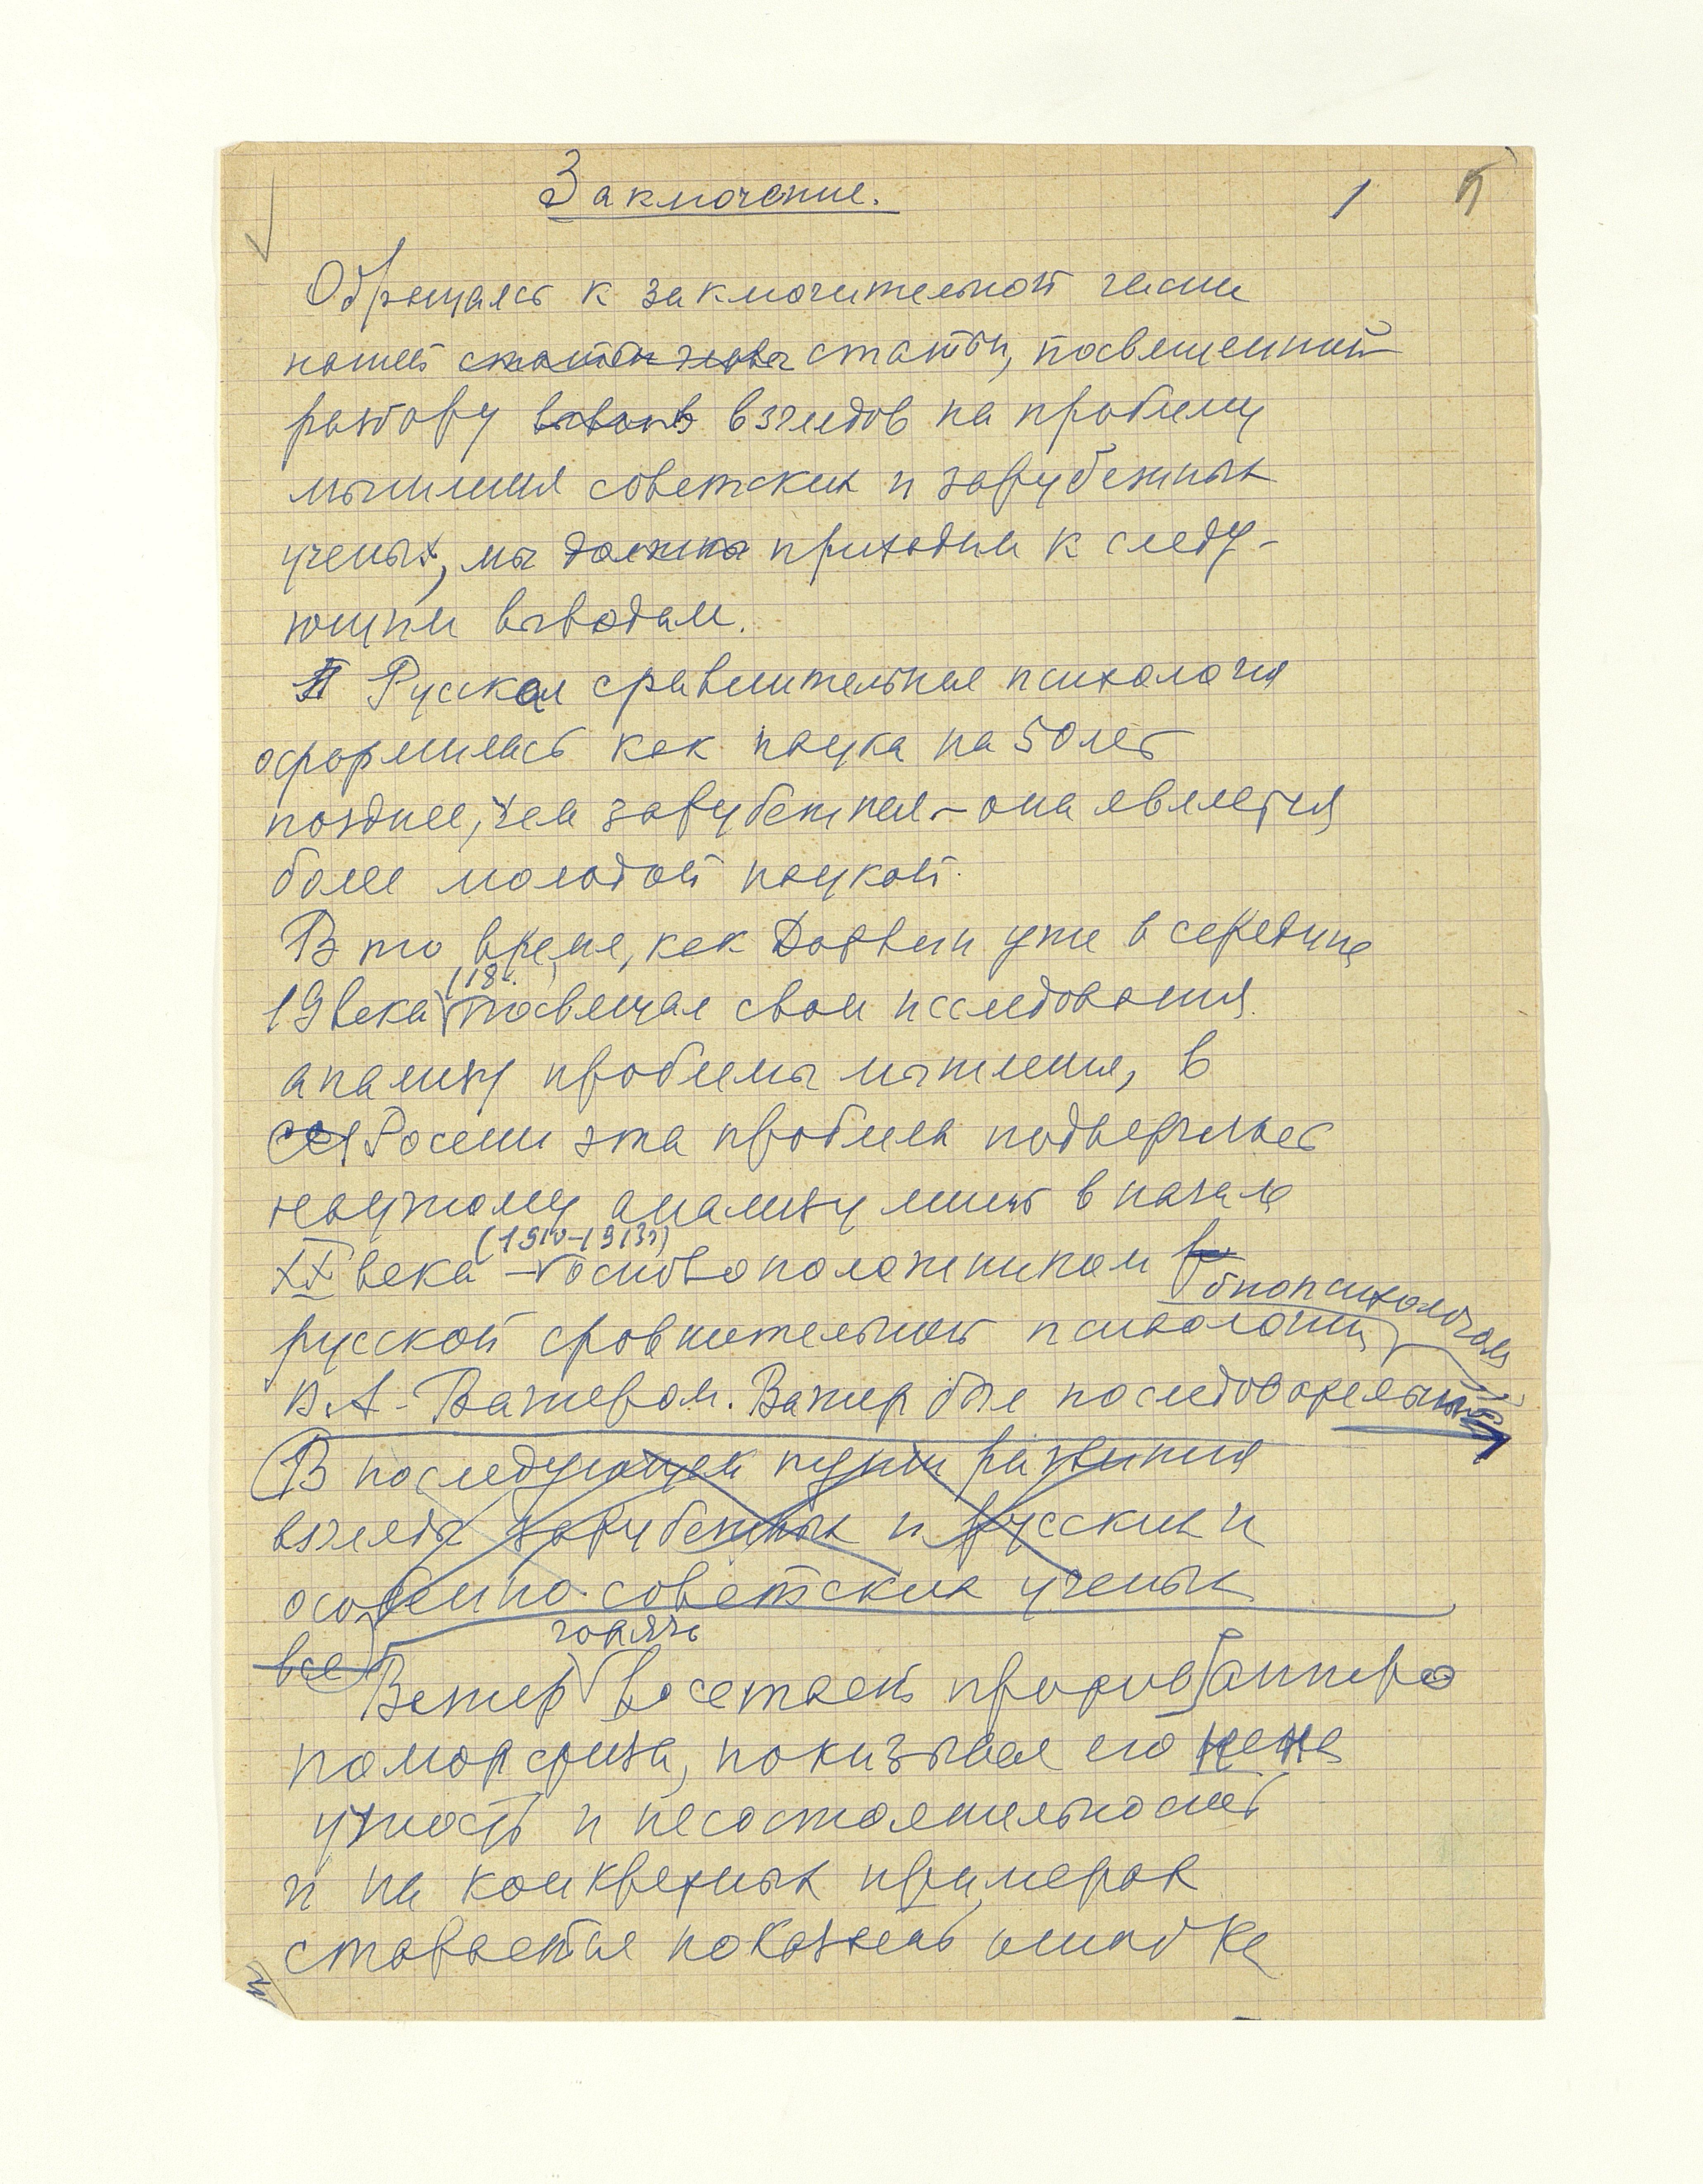 Заключение. 1 5
Обращаясь к заключительной части
нашей статьи главы статьи, посвященной
разбору взглядов на проблему
мышления советских и зарубежных
ученых, мы должны приходим к следу-
ющим выводам.
Русская сравнительная психология
оформилась как наука на 50 лет
позднее, чем зарубежная – она является
более молодой наукой.
В то время, как Дарвин уже в середине
(18 г. )
19 века посвящал свои исследования
анализу проблемы мышления, в
России эта проблема подверглась
научному анализу лишь в начале
(1910–1913г)
XX века – основоположником
биопсихологом
русской сравнительной психологии
В.А. Вагнером. Вагнер был последовательным
В последующем пути развития
взгляды зарубежных и русских и
особенно советских ученых
все
горячо
Вагнер восстает против антропо
поморфизма, показывая его нена
учность и несостоятельность
и на конкретных примерах
старается показать ошибки